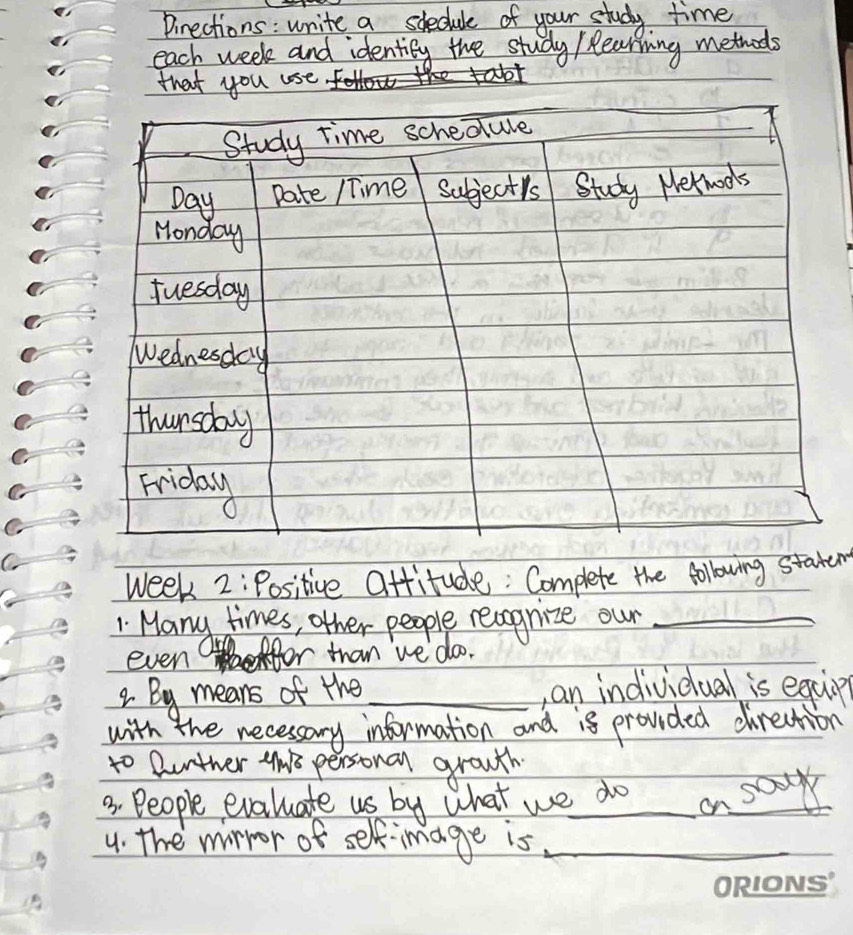 Directions: write a scedule of your study time
each week and identify the study/learning methods
that you use. Follow the tabt
Study Time schedule
Day Date/Time Subject/s Study Methods
Monday
Tuesday
Wednesday
Thursday
Friday
Week 2: Positive Attitude: Complete the following statem
1. Many times, other people recognize our ______
even after than we do.
2. By means of the ______, an individual is equipp
with the necessary information and is provided direction
to further personal growth.
3. People evaluate us by what we do ______ on say
4. The mirror of self-image is ______
ORIONS